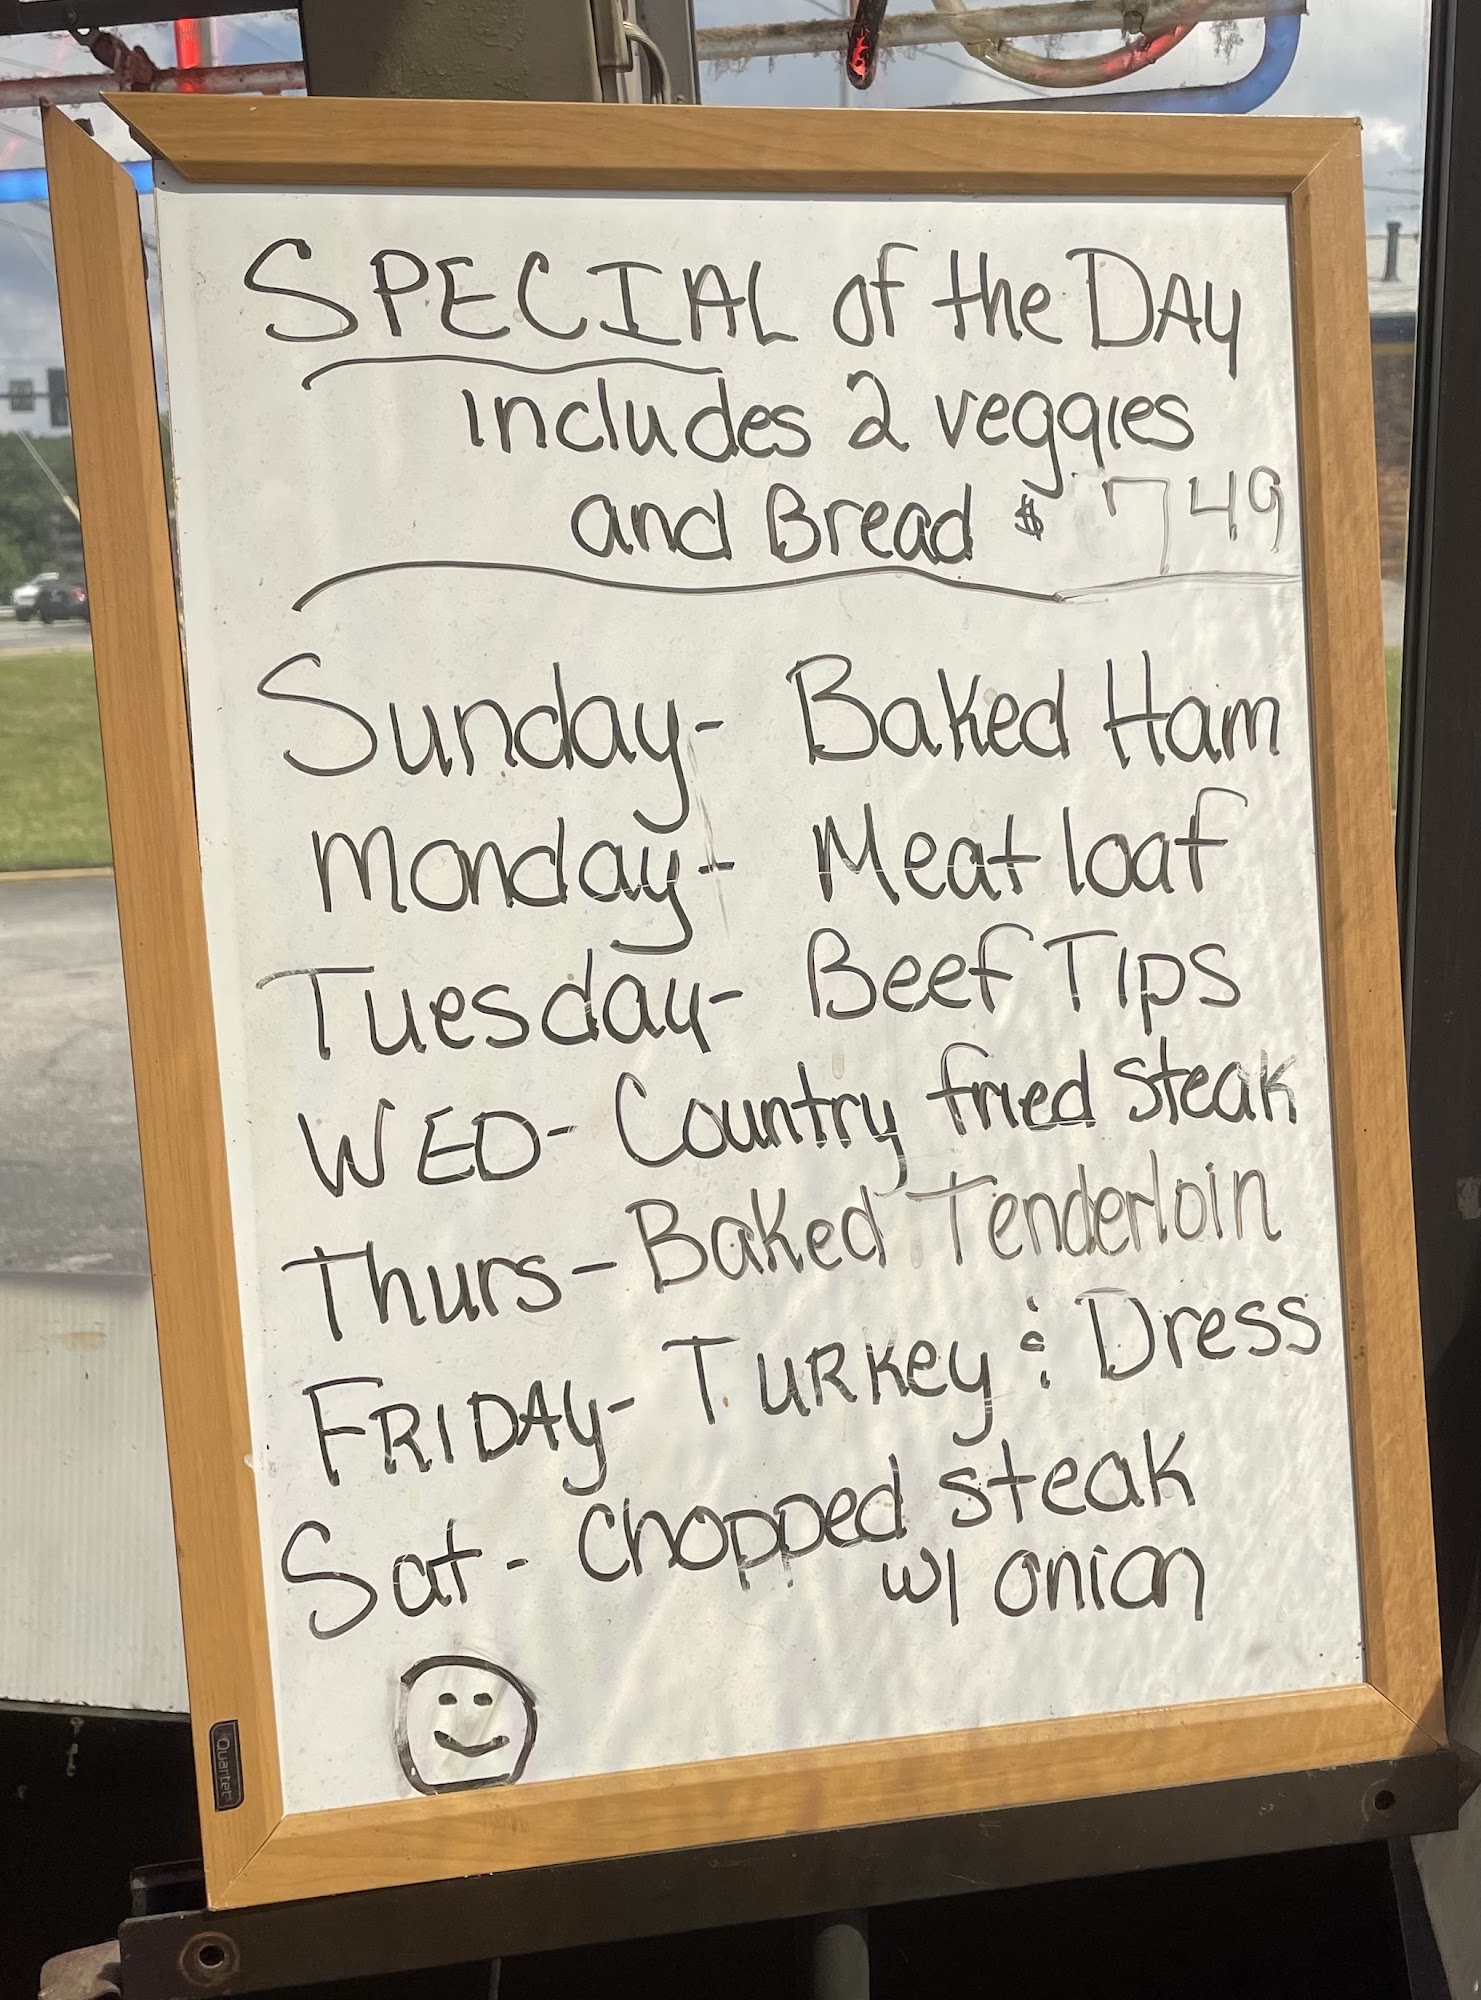 SPECIAL of the DAY
includes 2 veggies
and Bread $ 7 49
Sunday- Baked Ham
Monday- Meat loaf
Tuesday- Beef Tips
WED- Country fried steak
Thurs- Baked Tenderloin
FRIDAY- TURKey & Dress
Sat- Chopped steak
w/ onion
Quartet